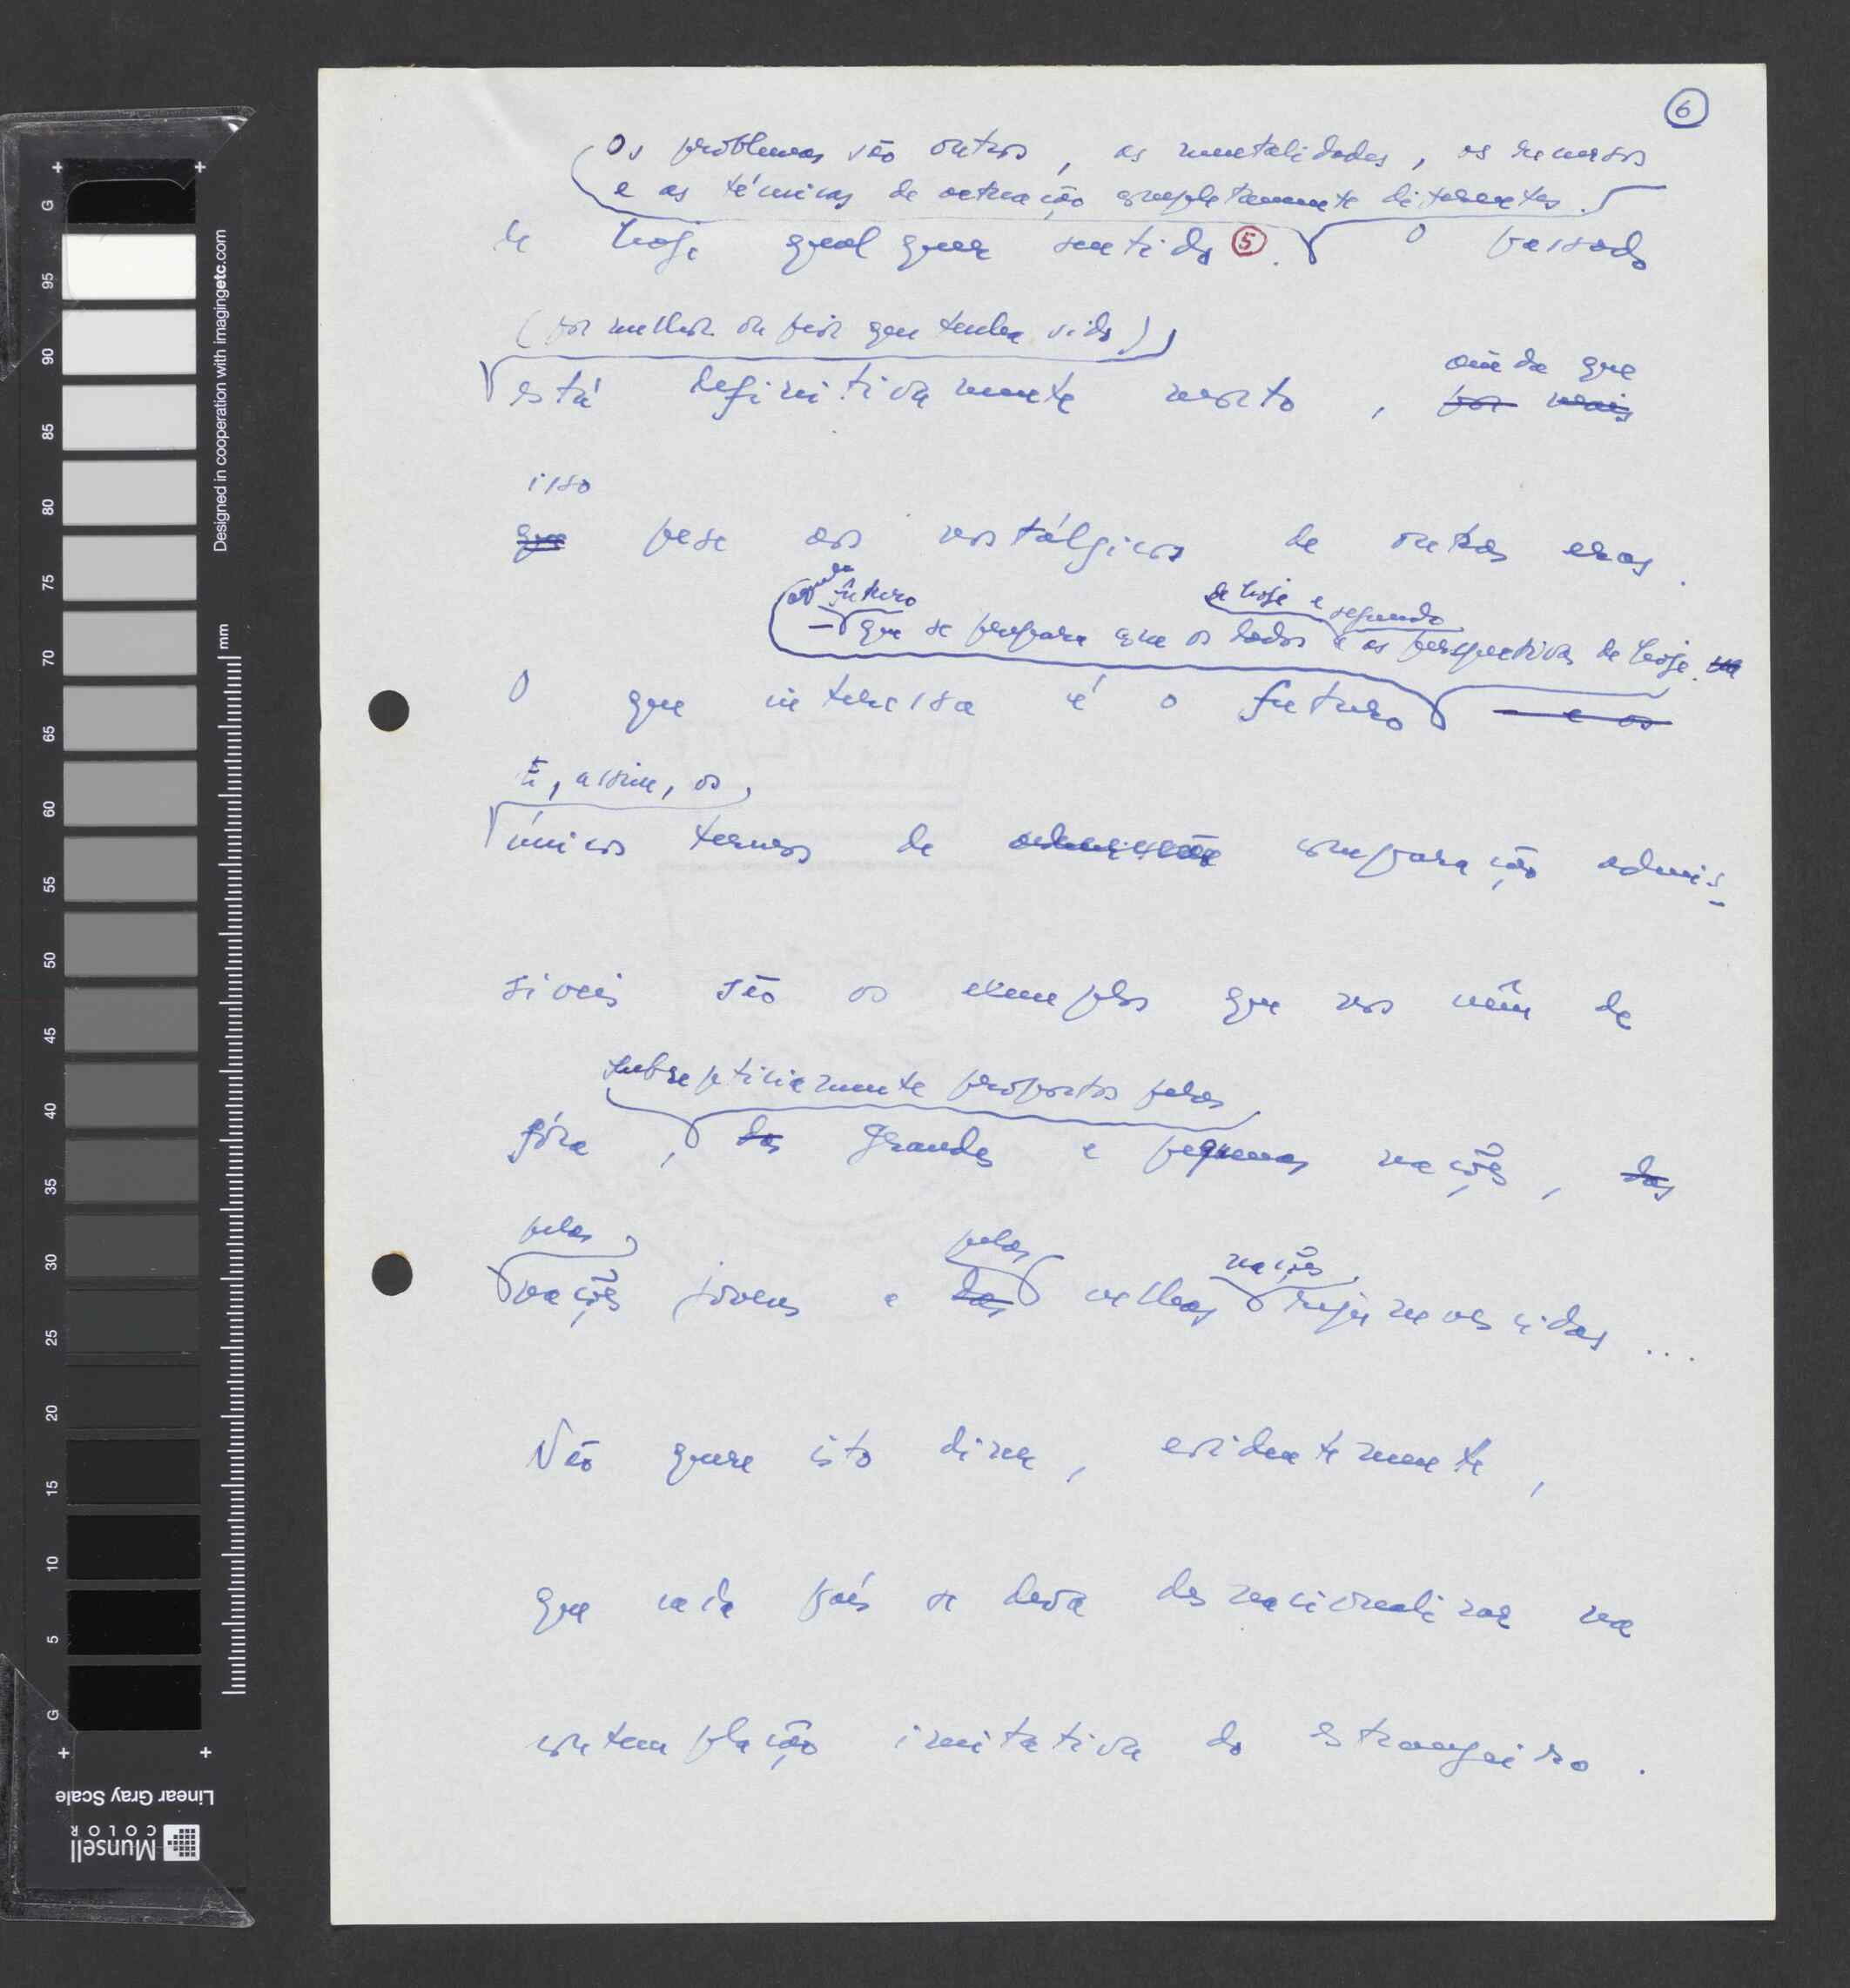 6
Os problemas são outros, as mentalidades, os recursos
e as técnicas de actuação completamente diferentes.
de hoje qualquer sentido 5. O passado
(por melhor ou pior que tenha sido)
está definitivamente morto, por mais
ainda que
isso
que pese aos nostálgicos de outras eras.
futuro de hoje e segundo
— que se prepara com os dados e as perspectivas de hoje.
O que interessa é o futuro — e os
E, assim, os
únicos termos de comparação admis-
síveis são os exemplos que nos vêm de
subrepticiamente propostos pelas
fóra, das grandes e pequenas nações, das
pelas pelas nações
nações jovens e das velhas rejuvenescidas...
Não quere isto dizer, evidentemente,
que cada país se deva desnacionalizar na
contemplação imitativa do estrangeiro.
G 95 90 85 80 75 70 65 60 55 50 45 40 35 30 25 20 15 10 5 G
Designed in cooperation with imagingetc.com
mm
Linear Gray Scale
Munsell
COLOR